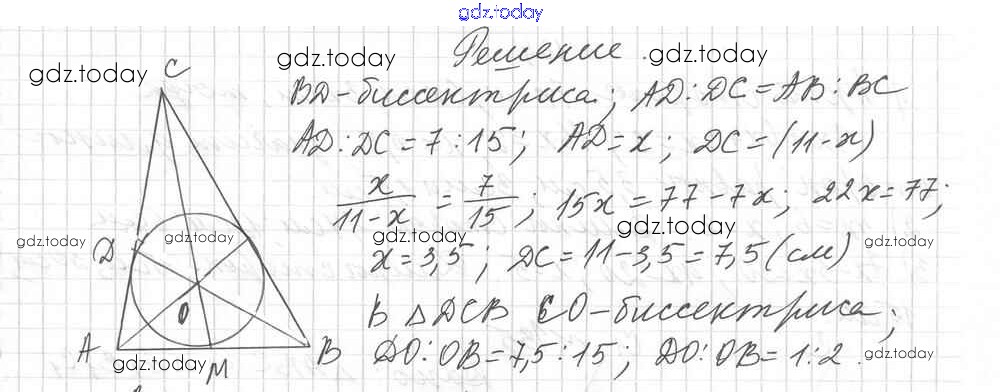 gdz.today
Решение gdz.today
gdz.today
gdz.today
C
BD-биссектриса; AD:DC=AB:BC
AD:DC=7:15; AD=x; DC=(11-x)
x/(11-x) = 7/15; 15x=77-7x; 22x=77;
gdz.today
gdz.today
gdz.today
gdz.today
gdz.today
D
x=3,5; DC=11-3,5=7,5(см)
В △DCB CO-биссектриса;
O
A
M
B
DO:OB=7,5:15; DO:OB=1:2.
gdz.today
gdz.today